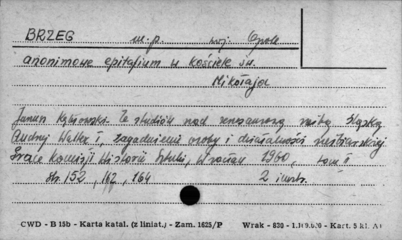 BRZEG m.p. woj. Opole
anonimowe epitafium w kościele św.
Mikołaja
Janusz Kębłowski. Ze studiów nad renesansową rzeźbą Śląską
Andrzej Walter I, zagadnienie osoby i działalności
Prace Komisji Historii Sztuki, Wrocław 1960, tom I
str. 152, 162, 164 2 ilustr.
CWD - B 15b - Karta katal. (z liniat.) - Zam. 1625/P Wrak - 830 - Kart. 5 kl.